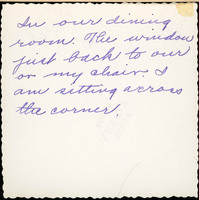 In our dining
room. The window
just back to our
or my chair. I
am sitting across
the corner.